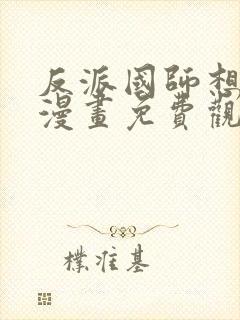 反派國師想
漫畫免費觀
樸淮基